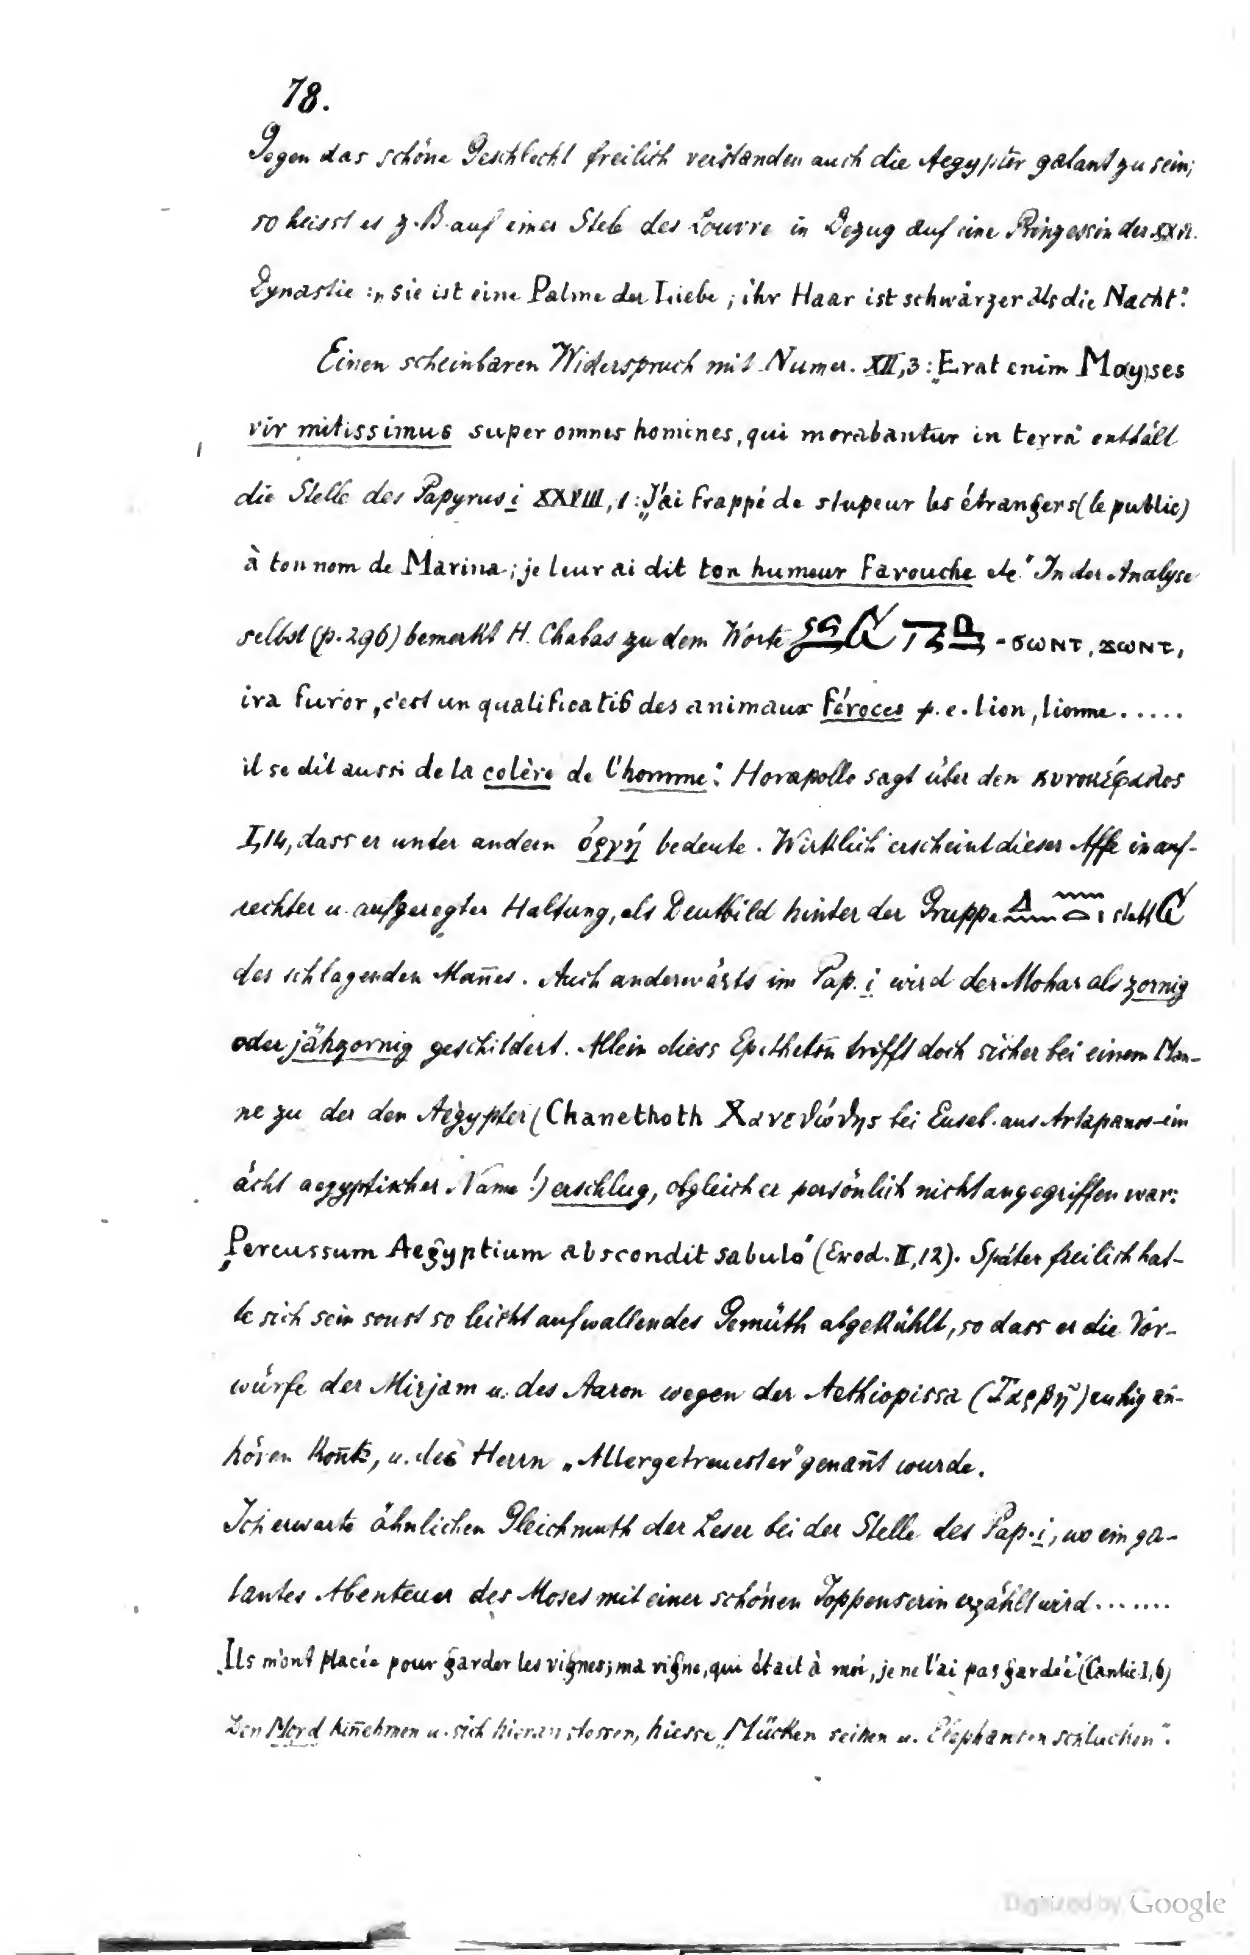 78.
Gegen das schöne Geschlecht freilich verstanden auch die Aegypter galant zu sein;
so heisst es z. B. auf einer Stele des Louvre in Bezug auf eine Prinzessin der XXVI.
Dynastie: „sie ist eine Palme der Liebe; ihr Haar ist schwärzer als die Nacht".
Einen scheinbaren Widerspruch mit Numer. XII,3: „Erat enim Mo(y)ses
vir mitissimus super omnes homines, qui morabantur in terra" enthält
die Stelle des Papyrus i XXVIII, 1: „J'ai frappé de stupeur les étrangers (le public)
à ton nom de Marina; je leur ai dit ton humeur farouche etc." In der Analyse
selbst (p. 296) bemerkt H. Chabas zu dem Worte - ϭωντ, ϫωντ,
ira furor, c'est un qualificatif des animaux féroces p. e. lion, lionne.....
il se dit aussi de la colère de l'homme". Horapollo sagt über den κυνοκέφαλος
I,14, dass er unter andern ὀργή bedeute. Wirklich erscheint dieser Affe in auf-
rechter u. aufgeregter Haltung, als Deutbild hinter der Gruppe statt
des schlagenden Mannes. Auch anderwärts im Pap. i wird der Mohar als zornig
oder jähzornig geschildert. Allein diess Epitheton trifft doch sicher bei einem Man-
ne zu der den Aegypter (Chanethoth Χανεθώθης bei Euseb. aus Artapanos - ein
ächt aegyptischer Name!) erschlug, obgleich er persönlich nicht angegriffen war:
„Percussum Aegyptium abscondit sabulo" (Exod. II,12). Später freilich hat-
te sich sein sonst so leicht aufwallendes Gemüth abgekühlt, so dass er die Vor-
würfe der Mirjam u. des Aaron wegen der Aethiopissa (Θαρβη) ruhig an-
hören konnte, u. des Herrn „Allergetreuester" genannt wurde.
Ich erwarte ähnlichen Gleichmuth der Leser bei der Stelle des Pap. i, wo ein ga-
lantes Abenteuer des Moses mit einer schönen Joppenserin erzählt wird.......
„Ils m'ont placée pour garder les vignes; ma vigne, qui était à moi, je ne l'ai pas gardée" (Cantic. I, 6)
Den Mord hinnehmen u. sich hieran stossen, hiesse „Mücken seihen u. Elephanten schlucken".
Digitized by Google